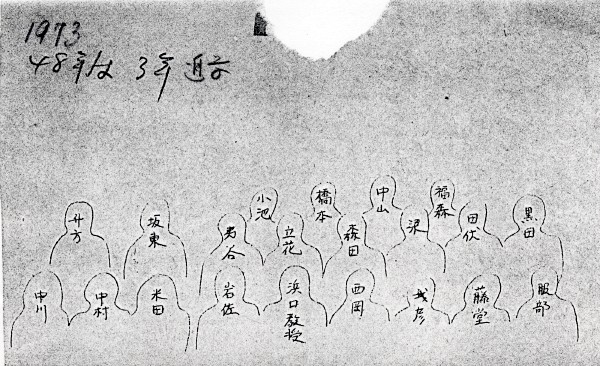 1973
48年 3年
小池
橋本
中山
福森
廿方
坂東
岩谷
立花
森田
沢
田伏
黒田
中川
中村
米田
岩佐
浜口教授
西岡
我彦
藤堂
服部